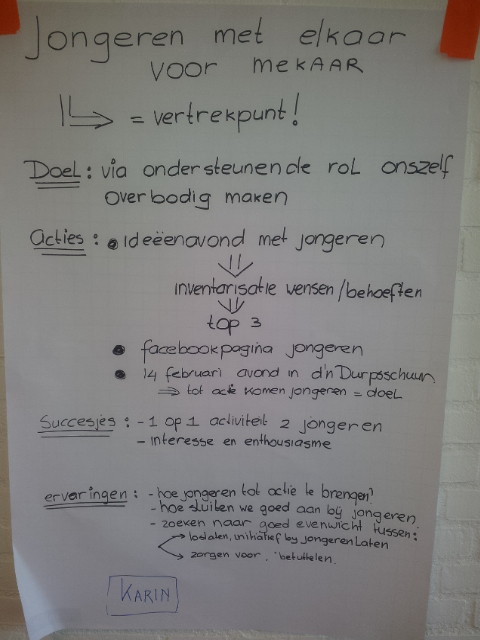 Jongeren met elkaar
voor mekaar
= vertrekpunt!
Doel: via ondersteunende rol onszelf
overbodig maken
Acties: • ideeënavond met jongeren
inventarisatie wensen/behoeften
top 3
• facebookpagina jongeren
• 14 februari avond in d'n Durpsschuur
⇒ tot actie komen jongeren = doel
Succesjes: - 1 op 1 activiteit 2 jongeren
- interesse en enthousiasme
ervaringen: - hoe jongeren tot actie te brengen?
- hoe sluiten we goed aan bij jongeren
- zoeken naar goed evenwicht tussen:
loslaten, initiatief bij jongeren laten
zorgen voor, betuttelen.
KARIN